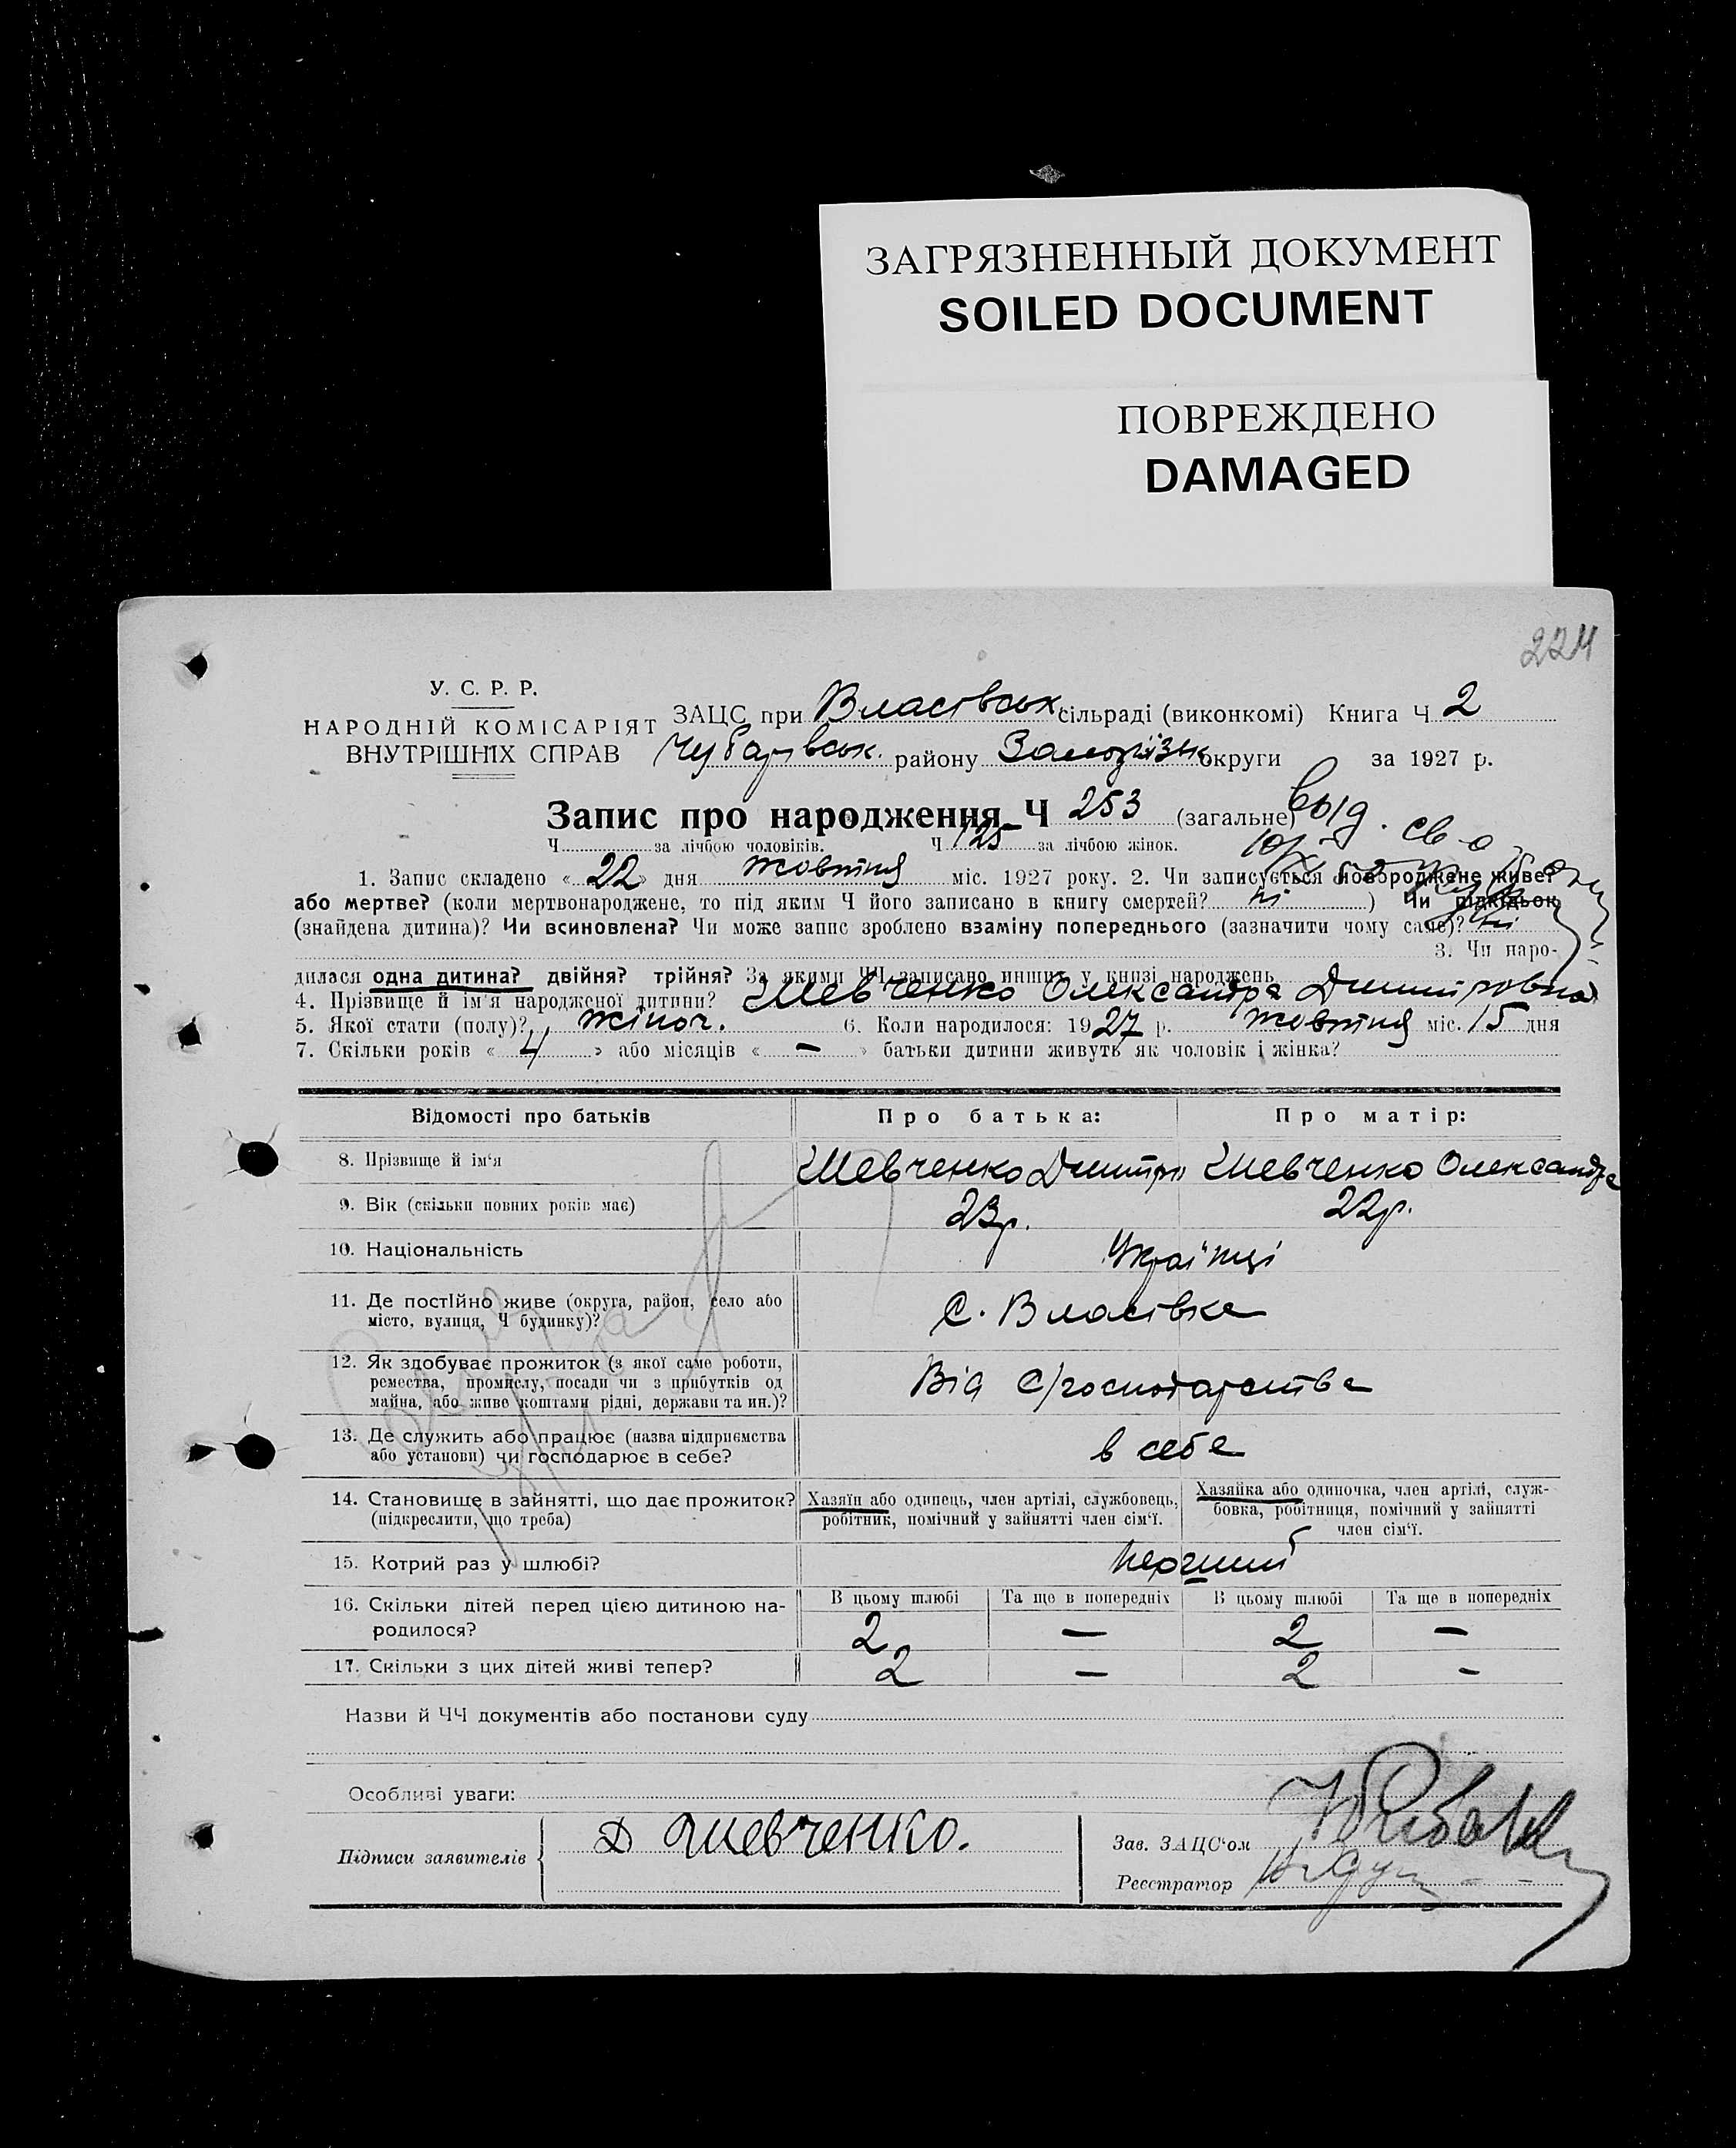 ЗАГРЯЗНЕННЫЙ ДОКУМЕНТ
SOILED DOCUMENT
ПОВРЕЖДЕНО
DAMAGED
224
У. С. Р. Р.
НАРОДНІЙ КОМІСАРІЯТ
ВНУТРІШНІХ СПРАВ
ЗАЦС при Власівськ сільраді (виконкомі) Книга Ч 2
Чубарівськ. району Запоріжськ округи за 1927 р.
Запис про народження Ч 253 (загальне)
выд. св-о
Ч за лічбою чоловіків. Ч 125 за лічбою жінок.
1. Запис складено «22» дня жовтня міс. 1927 року. 2. Чи записується новороджене живе?
або мертве? (коли мертвонароджене, то під яким Ч його записано в книгу смертей? ні ) Чи підкідьок
(знайдена дитина)? Чи всиновлена? Чи може запис зроблено взаміну попереднього (зазначити чому саме)? ні
3. Чи наро-
дилася одна дитина? двійня? трійня? За якими ЧЧ записано инших у книзі народжень
4. Прізвище й ім'я народженої дитини? Шевченко Олександра Дмитровна
5. Якої стати (полу)? жіноч. 6. Коли народилося: 1927 р. жовтня міс. 15 дня
7. Скільки років «4» або місяців «—» батьки дитини живуть як чоловік і жінка?
Відомості про батьків Про батька: Про матір:
8. Прізвище й ім'я Шевченко Дмитро Шевченко Олександра
9. Вік (скільки повних років має) 23р. 22р.
10. Національність Українці
11. Де постійно живе (округа, район, село або
місто, вулиця, Ч будинку)? С. Власівка
12. Як здобуває прожиток (з якої саме роботи,
ремества, промислу, посади чи з прибутків од
майна, або живе коштами рідні, держави та ин.)? Від с/господарства
13. Де служить або працює (назва підприємства
або установи) чи господарює в себе? в себе
14. Становище в зайнятті, що дає прожиток?
(підкреслити, що треба)
Хазяїн або одинець, член артілі, службовець,
робітник, помічний у зайнятті член сім'ї.
Хазяйка або одиночка, член артілі, служ-
бовка, робітниця, помічний у зайнятті
член сім'ї.
15. Котрий раз у шлюбі? перший
16. Скільки дітей перед цією дитиною на-
родилося?
В цьому шлюбі Та ще в попередніх В цьому шлюбі Та ще в попередніх
2 — 2 —
17. Скільки з цих дітей живі тепер? 2 — 2 -
Назви й ЧЧ документів або постанови суду
Особливі уваги:
Підписи заявителів Д Шевченко.
Зав. ЗАЦС'ом
Реєстратор